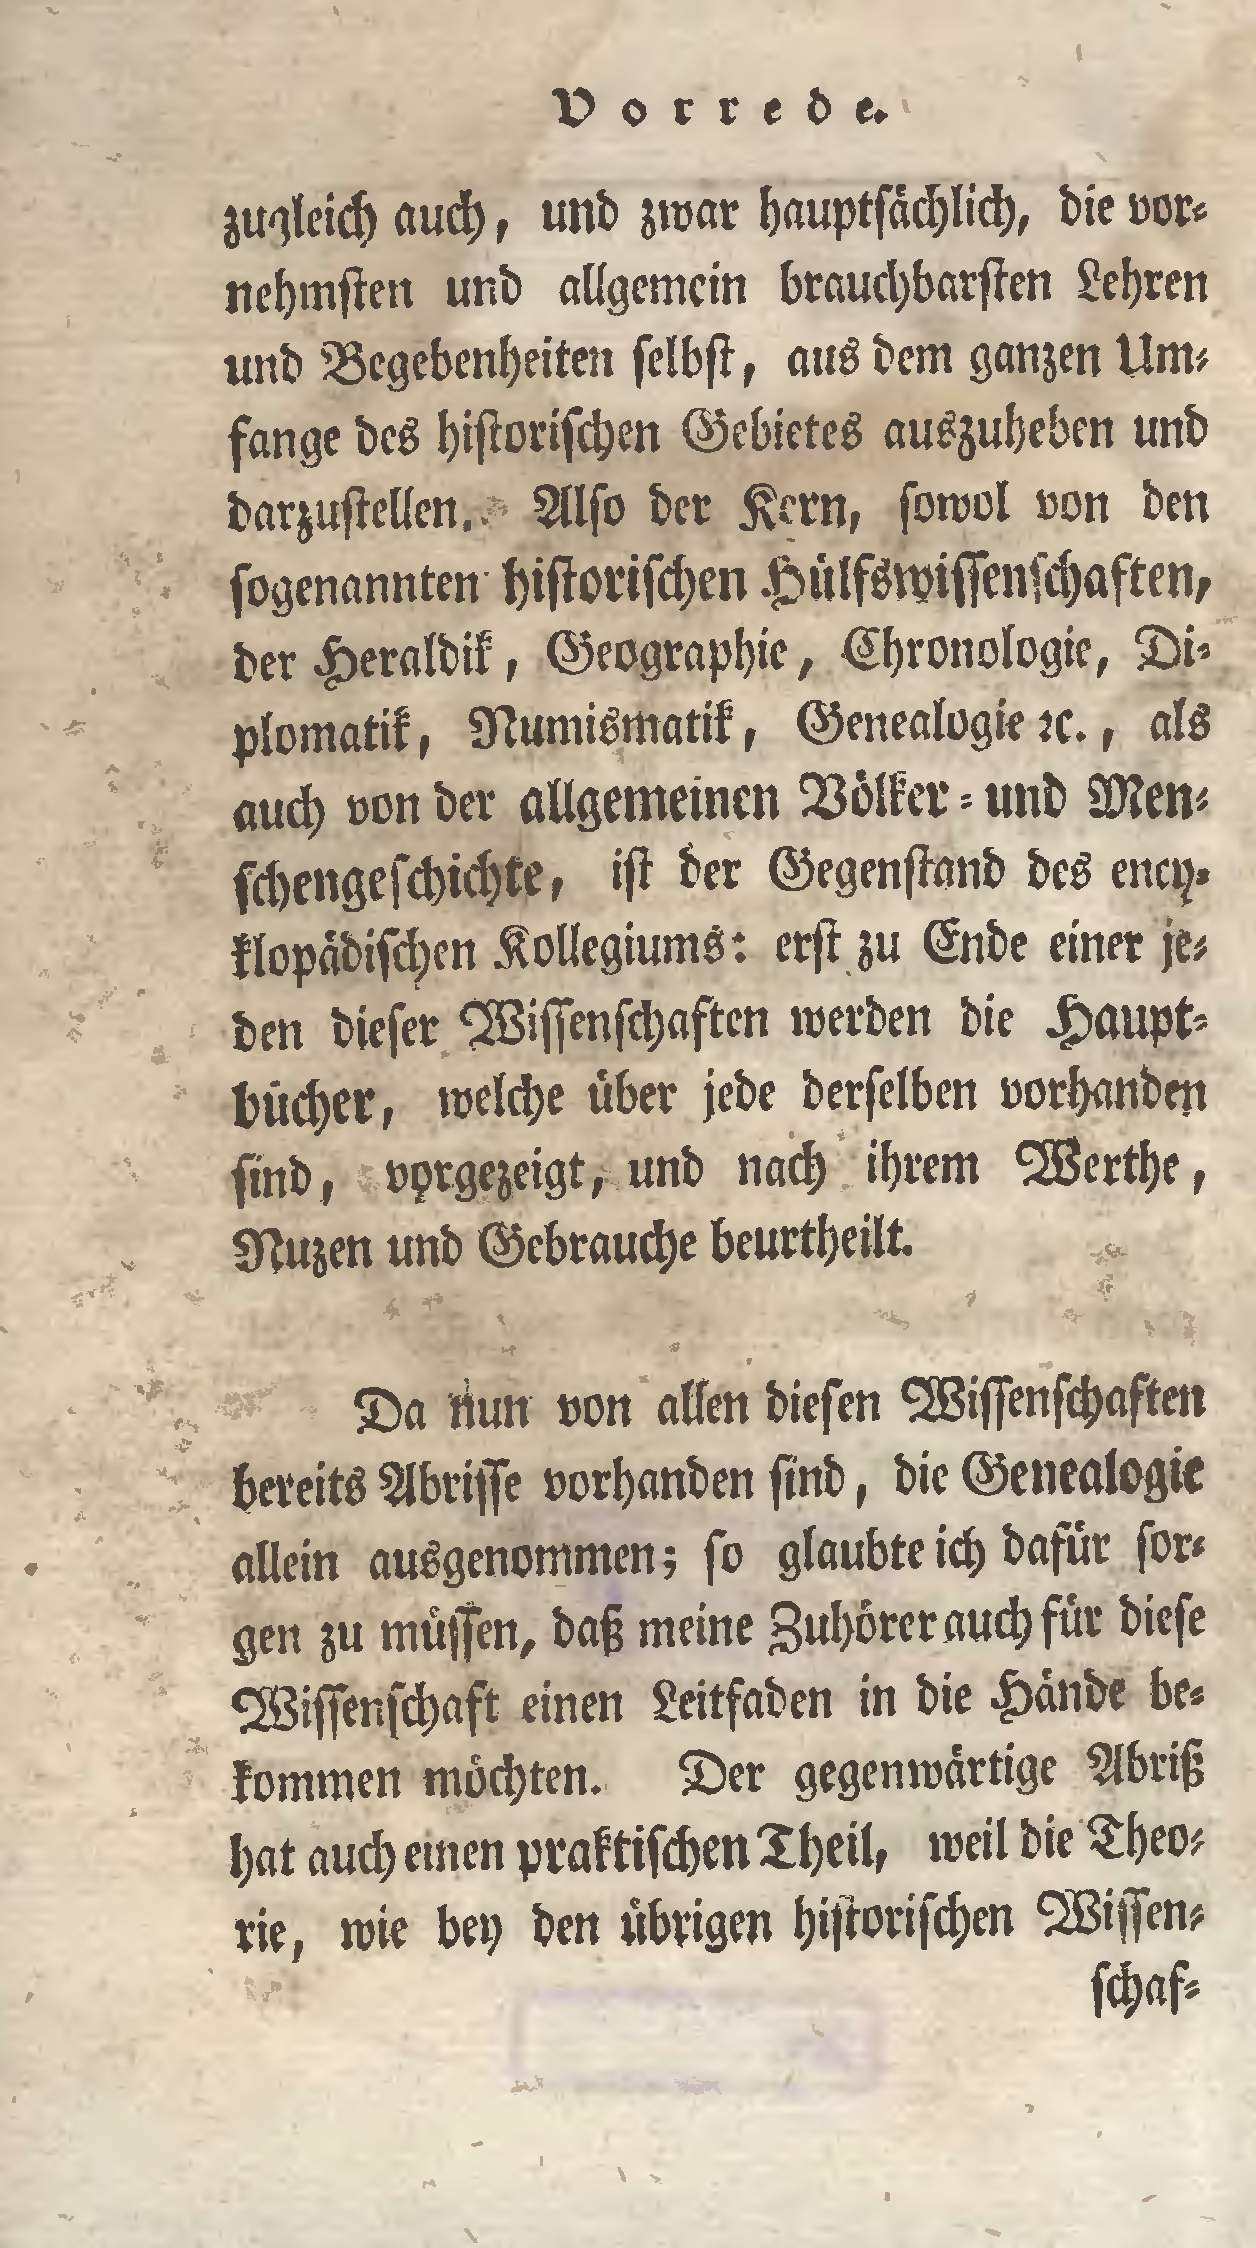 Vorrede.
zugleich auch, und zwar hauptſächlich, die vor⸗
nehmſten und allgemein brauchbarſten Lehren
und Begebenheiten ſelbſt, aus dem ganzen Um⸗
fange des hiſtoriſchen Gebietes auszuheben und
darzuſtellen. Alſo der Kern, ſowol von den
ſogenannten hiſtoriſchen Hülfswiſſenſchaften,
der Heraldik, Geographie, Chronologie, Di⸗
plomatik, Numismatik, Genealogie ꝛc., als
auch von der allgemeinen Völker⸗ und Men⸗
ſchengeſchichte, iſt der Gegenſtand des ency⸗
klopädiſchen Kollegiums: erſt zu Ende einer je⸗
den dieſer Wiſſenſchaften werden die Haupt⸗
bücher, welche über jede derſelben vorhanden
ſind, vorgezeigt, und nach ihrem Werthe,
Nuzen und Gebrauche beurtheilt.
Da nun von allen dieſen Wiſſenſchaften
bereits Abriſſe vorhanden ſind, die Genealogie
allein ausgenommen; ſo glaubte ich dafür ſor⸗
gen zu müſſen, daß meine Zuhörer auch für dieſe
Wiſſenſchaft einen Leitfaden in die Hände be⸗
kommen möchten. Der gegenwärtige Abriß
hat auch einen praktiſchen Theil, weil die Theo⸗
rie, wie bey den übrigen hiſtoriſchen Wiſſen⸗
ſchaf⸗